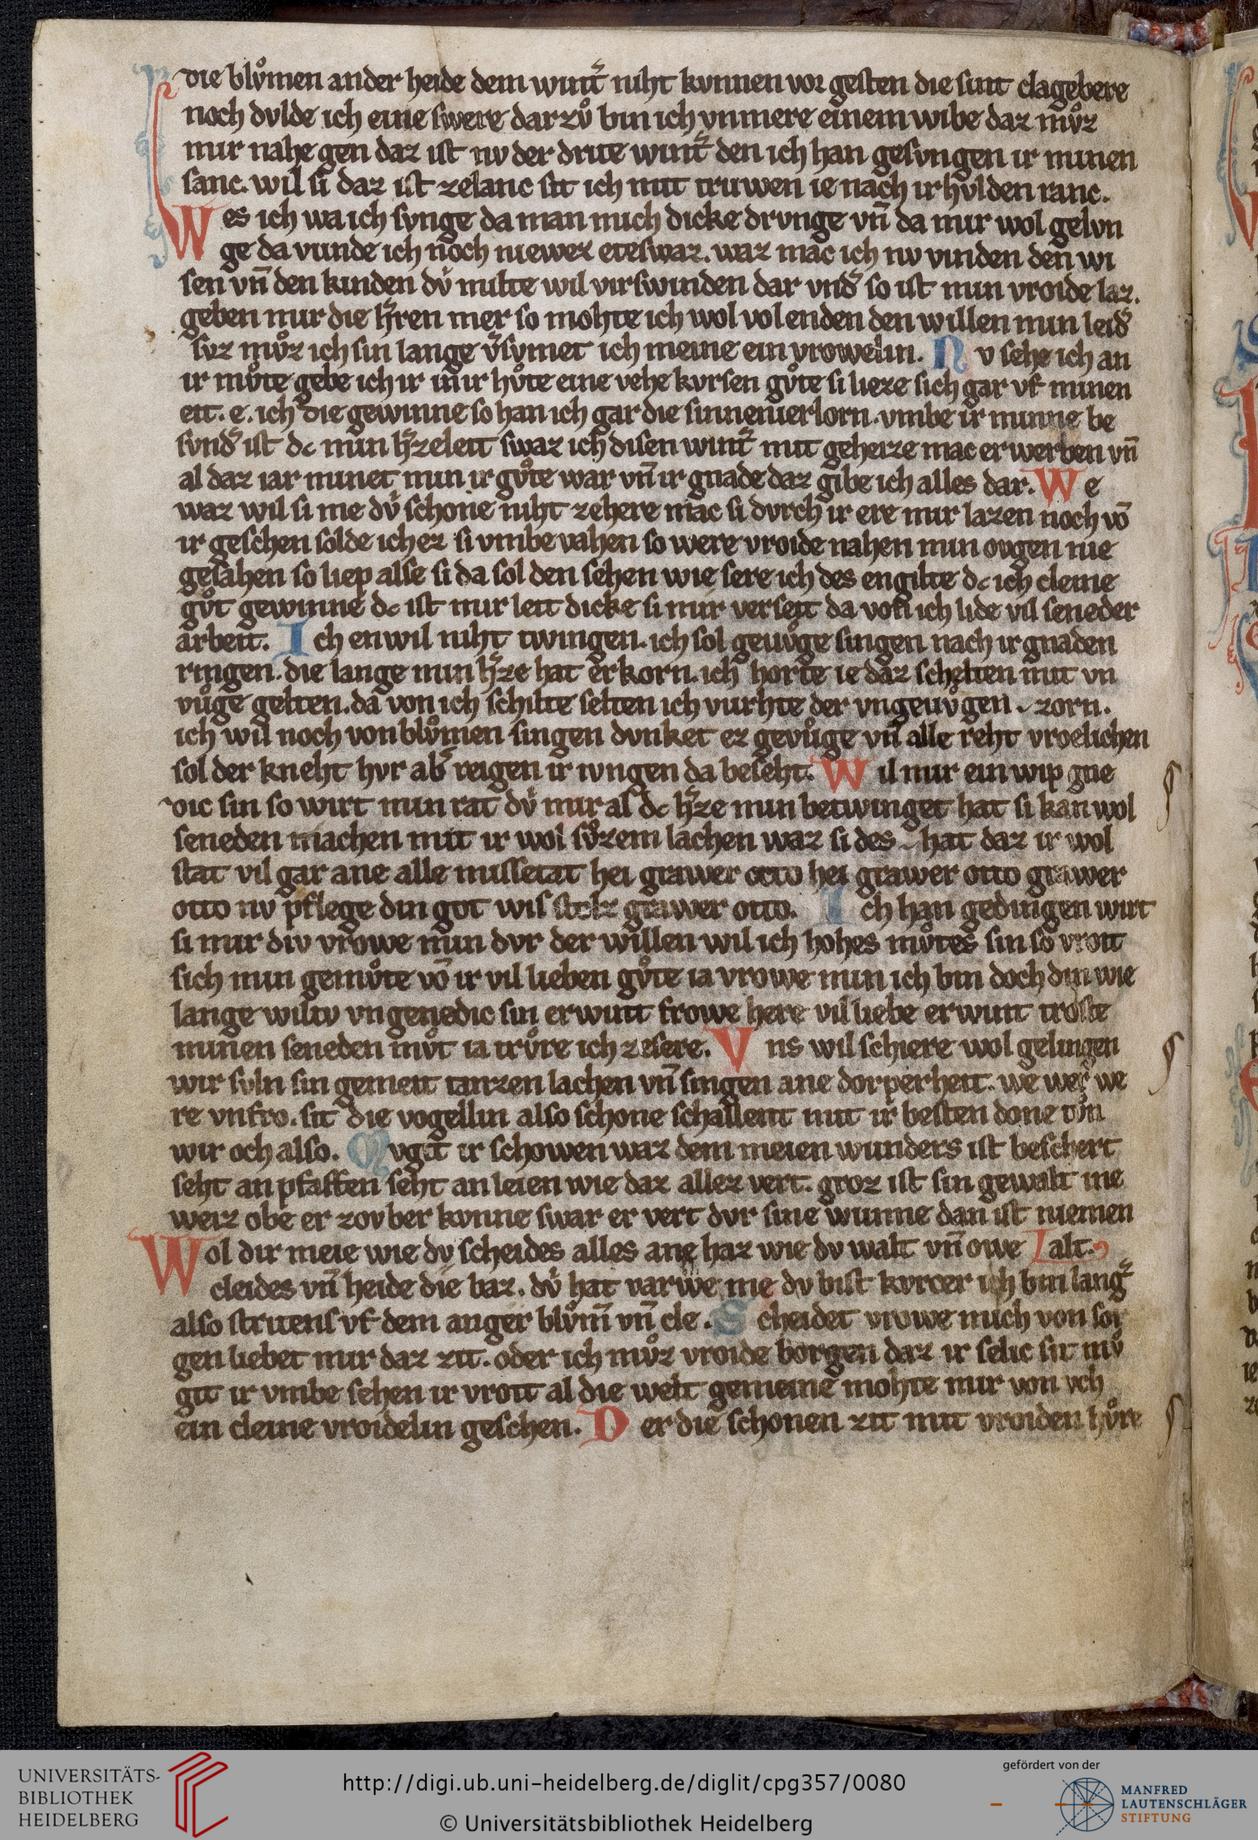 die blůmen ander heide dem wint͛ niht kvnnen vor gesten die sint clagebere
noch dvlde ich eine swere dar zů bin ich vnmere einem wibe daz můz
mir nahe gen daz ist nv der drite wint͛ den ich han gesvngen ir minen
sanc. wil si daz ist zelanc sit ich mit truwen ie nach ir hvlden ranc.
Wes ich wa ich synge da man mich dicke drvnge vn̄ da mir wol gelvn
ge da vunde ich noch niewez eteswaz. waz mac ich nv vinden den wi
sen vn̄ den kinden dv́ milte wil virswinden dar vnd͛ so ist min vroide laz.
geben mir die h͛ren mer so mohte ich wol vol enden den willen min leid͛
svz můz ich sin lange v͛symet ich meine ein vrowelin. Nv sehe ich an
ir můte gebe ich ir in ir hůte eine vehe kvrsen gůte si lieze sich gar vf minen
eit. e. ich die gewinne so han ich gar die sinne uerlorn. vmbe ir minne be
svnd͛ ist dc min h͛zeleit swaz ich disen wint͛ mit geheize mac erwerben vn̄
al daz iar nimet min ir gůte war vn̄ ir gnade daz gibe ich alles dar. We
waz wil si me dv́ schone niht zehere mac si dvrch ir ere mir lazen noch vō
ir geschen solde ich ez si vmbevahen so were vroide nahen min ovgen nie
gesahen so liep alse si da sol den sehen wie sere ich des engilte dc ich cleine
gůt gewinne dc ist mir leit dicke si mir verseit da von ich lide vil seneder
arbeit. Ich enwil niht twingen. ich sol geuůge singen nach ir gnaden
ringen. die lange min h͛ze hat erkorn. ich horte ie daz schelten mit vn
vůge gelten. da von ich schilte selten ich vurhte der vngeuůgen zorn.
ich wil noch von blůmen singen dvnket ez gevůge vn̄ alle reht vroelichen
sol der kneht hvr ab͛ reigen ir ivngen da beseht. Wil mir ein wip gne
dic sin so wirt min rat dv́ mir al dc h͛ze min betwinget hat si kan wol
seneden machen mit ir wol sůzem lachen waz si des hat daz ir wol
stat vil gar ane alle missetat hei grawer otto hei grawer otto grawer
otto nv pflege din got wis stolz grawer otto. Ich han gedingen wirt
si mir div vrowe min dvr der willen wil ich hohes můtes sin so vroit
sich min gemůte vō ir vil lieben gůte ia vrowe min ich bin doch din wie
lange wiltv vngenedic sin erwint frowe here vil liebe erwint troste
minen seneden můt ia trůre ich zesere. Vns wil schiere wol gelingen
wir svln sin gemeit tanzen lachen vn̄ singen ane dorperheit. we wer we
re vnfro. sit die vogellin also schone schallent mit ir besten done tůn
wir och also. Mvgit ir schowen waz dem meien wunders ist beschert
seht an pfaffen seht an leien wie daz allez vert. groz ist sin gewalt ine
weiz obe er zovber kvnne swar er vert dvr sine wunne dan ist niemen
Wol dir meie wie dv scheides alles ane haz wie dv walt vn̄ owe alt.
cleides vn̄ heide die baz. dv́ hat varwe me dv bist kvrcer ich bin lang͛
also stritens vf dem anger blům̄ vn̄ cle. Scheidet vrowe mich von sor
gen liebet mir daz zit. oder ich můz vroide borgen daz ir selic sit mv́
git ir vmbe sehen ir vroit al die welt gemeine mohte mir von vch
ein cleine vroidelin geschen. Der die schonen zit mit vroiden hůre
UNIVERSITÄTS-
BIBLIOTHEK
HEIDELBERG
http://digi.ub.uni-heidelberg.de/diglit/cpg357/0080
© Universitätsbibliothek Heidelberg
gefördert von der
MANFRED
LAUTENSCHLÄGER
STIFTUNG